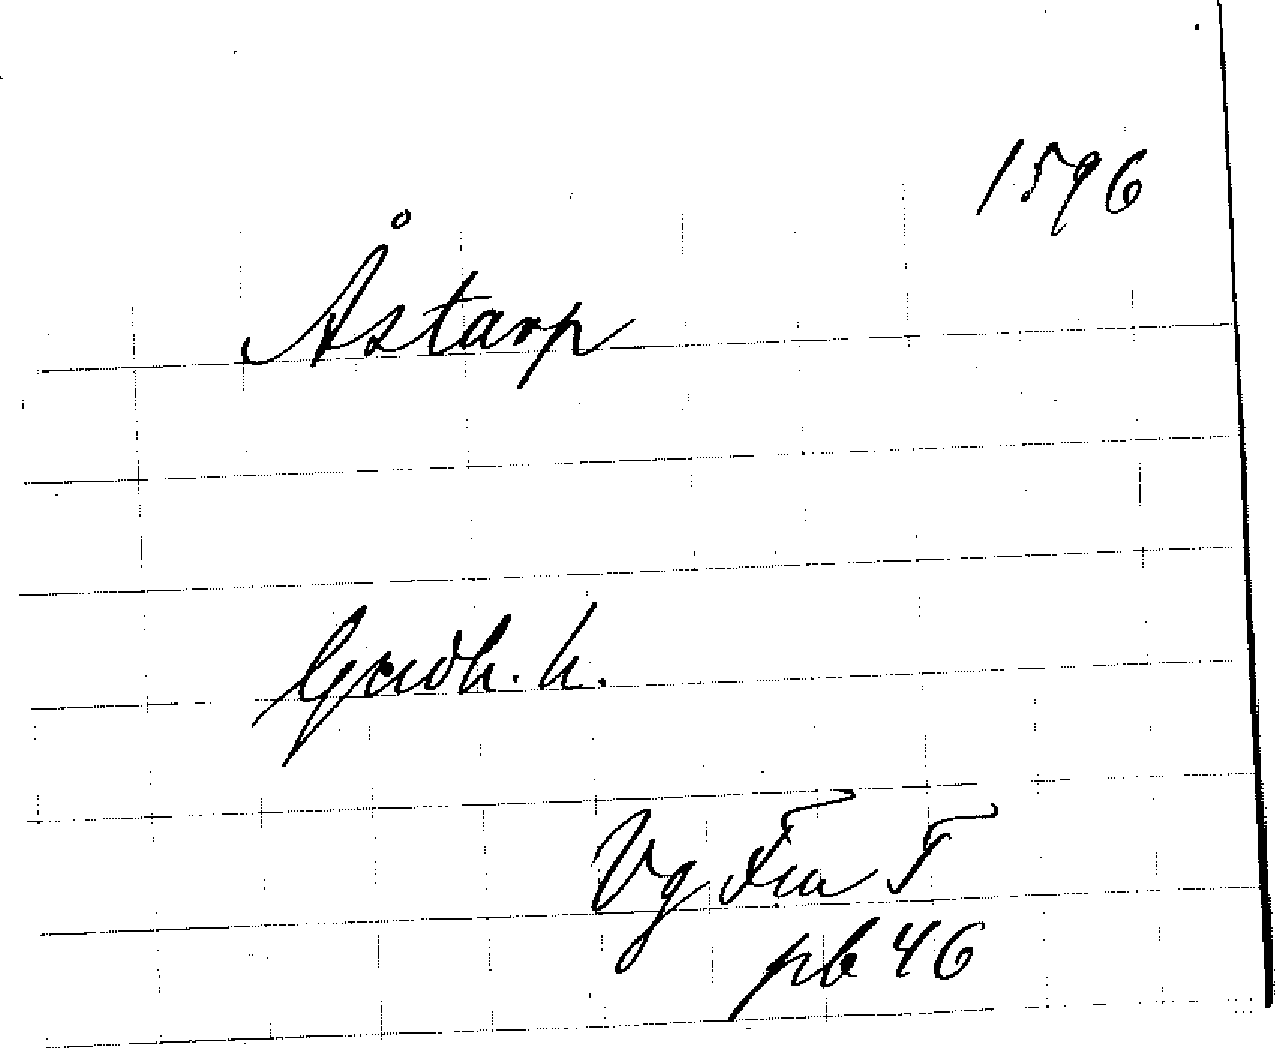 1596
Åstarp
Gudh. h.
Vg Fra T
pb 46